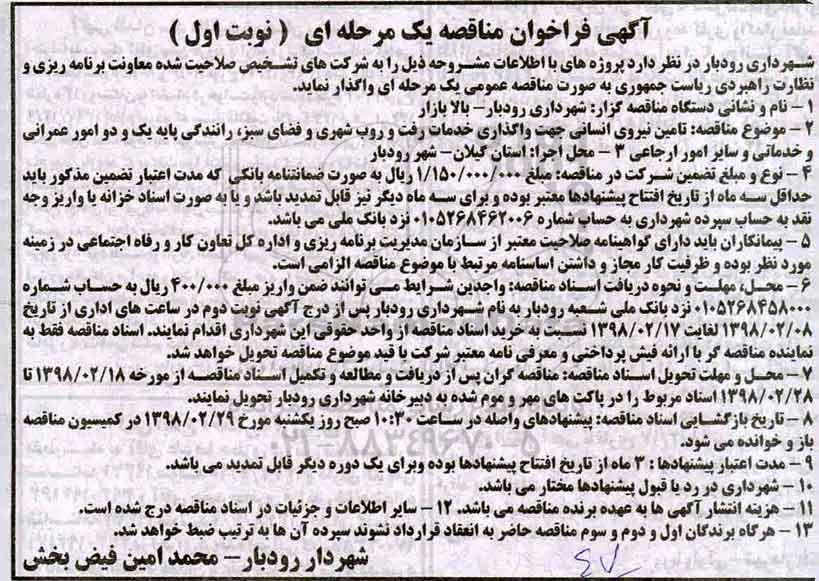 آگهی فراخوان مناقصه یک مرحله ای ( نوبت اول )
شهرداری رودبار در نظر دارد پروژه های با اطلاعات مشروحه ذیل را به شرکت های تشخیص صلاحیت شده معاونت برنامه ریزی و
نظارت راهبردی ریاست جمهوری به صورت مناقصه عمومی یک مرحله ای واگذار نماید.
۱ – نام و نشانی دستگاه مناقصه گزار: شهرداری رودبار– بالا بازار
۲ – موضوع مناقصه: تامین نیروی انسانی جهت واگذاری خدمات رفت و روب شهری و فضای سبز، رانندگی پایه یک و دو امور عمرانی
و خدماتی و سایر امور ارجاعی ۳ – محل اجرا: استان گیلان– شهر رودبار
۴ – نوع و مبلغ تضمین شرکت در مناقصه: مبلغ ۱/۱۵۰/۰۰۰/۰۰۰ ریال به صورت ضمانتنامه بانکی که مدت اعتبار تضمین مذکور باید
حداقل سه ماه از تاریخ افتتاح پیشنهادها معتبر بوده و برای سه ماه دیگر نیز قابل تمدید باشد و یا به صورت اسناد خزانه یا واریز وجه
نقد به حساب سپرده شهرداری به حساب شماره ۰۱۰۵۲۶۸۴۶۲۰۰۶ نزد بانک ملی می باشد.
۵ – پیمانکاران باید دارای گواهینامه صلاحیت معتبر از سازمان مدیریت برنامه ریزی و اداره کل تعاون کار و رفاه اجتماعی در زمینه
مورد نظر بوده و ظرفیت کار مجاز و داشتن اساسنامه مرتبط با موضوع مناقصه الزامی است.
۶ – محل، مهلت و نحوه دریافت اسناد مناقصه: واجدین شرایط می توانند ضمن واریز مبلغ ۴۰۰/۰۰۰ ریال به حساب شماره
۰۱۰۵۲۶۸۴۵۸۰۰۰ نزد بانک ملی شعبه رودبار به نام شهرداری رودبار پس از درج آگهی نوبت دوم در ساعت های اداری از تاریخ
۱۳۹۸/۰۲/۰۸ لغایت ۱۳۹۸/۰۲/۱۷ نسبت به خرید اسناد مناقصه از واحد حقوقی این شهرداری اقدام نمایند. اسناد مناقصه فقط به
نماینده مناقصه گر با ارائه فیش پرداختی و معرفی نامه معتبر شرکت با قید موضوع مناقصه تحویل خواهد شد.
۷ – محل و مهلت تحویل اسناد مناقصه: مناقصه گران پس از دریافت و مطالعه و تکمیل اسناد مناقصه از مورخه ۱۳۹۸/۰۲/۱۸ تا
۱۳۹۸/۰۲/۲۸ اسناد مربوط را در پاکت های مهر و موم شده به دبیرخانه شهرداری رودبار تحویل نمایند.
۸ – تاریخ بازگشایی اسناد مناقصه: پیشنهادهای واصله در ساعت ۱۰:۳۰ صبح روز یکشنبه مورخ ۱۳۹۸/۰۲/۲۹ در کمیسیون مناقصه
باز و خوانده می شود.
۰۲۱–۸۸۳۴۹۶۷۰–۵
۹ – مدت اعتبار پیشنهادها : ۳ ماه از تاریخ افتتاح پیشنهادها بوده وبرای یک دوره دیگر قابل تمدید می باشد.
۱۰ – شهرداری در رد یا قبول پیشنهادها مختار می باشد.
۱۱ – هزینه انتشار آگهی ها به عهده برنده مناقصه می باشد. ۱۲ – سایر اطلاعات و جزئیات در اسناد مناقصه درج شده است.
۱۳ – هرگاه برندگان اول و دوم و سوم مناقصه حاضر به انعقاد قرارداد نشوند سپرده آن ها به ترتیب ضبط خواهد شد.
شهردار رودبار– محمد امین فیض بخش